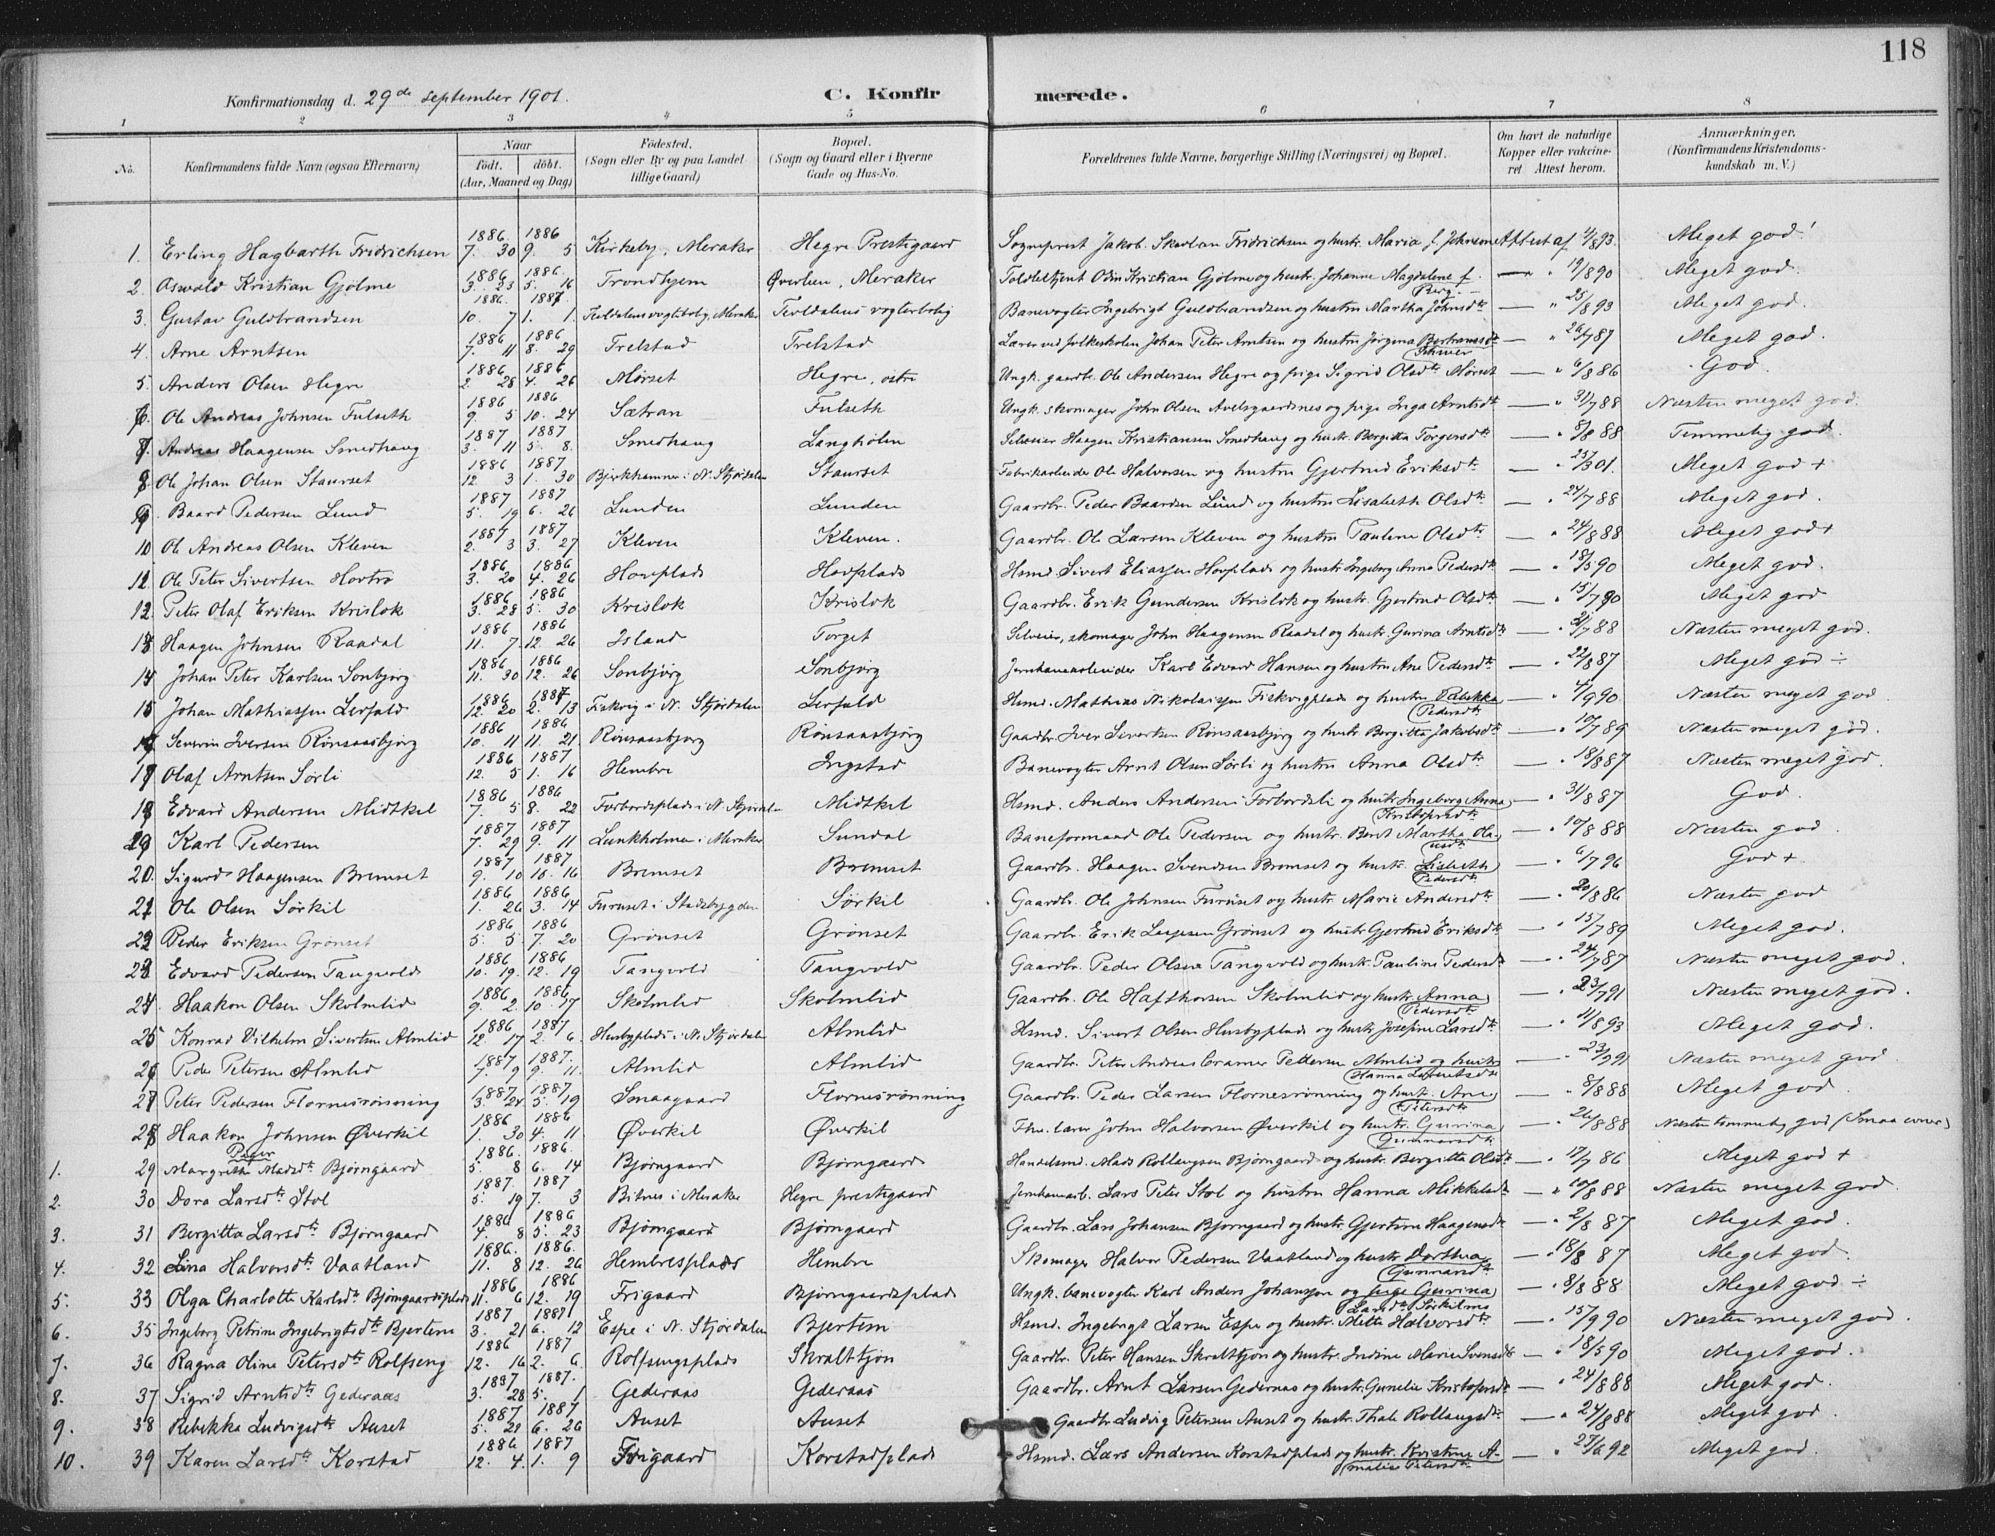 118
Konfirmationsdag d. 29de september 1901. C. Konfirmerede.
1 2 3 4 5 6 7 8
No. Konfirmandens fulde Navn (ogsaa Efternavn) Naar født. døbt. (Aar, Maaned og Dag) Fødested. (Sogn eller By og paa Landet tillige Gaard) Bopæl. (Sogn og Gaard eller i Byerne Gade og Hus-No. Forældrenes fulde Navne, borgerlige Stilling (Næringsvei) og Bopæl. Om havt de naturlige Kopper eller vakcineret. Attest herom. Anmærkninger. (Konfirmandens Kristendomskundskab m. V.)
1. Erling Hagbarth Fridrichsen 1886 7. 30 1886 9. 5 Kirkeby, Meraker Hegre Prestegaard Sogneprest Jakob Fridrichsen og hustr. Maria f. Johnsen Attest af 4/8 93. Meget god!
2. Oswald Kristian Gjølme 1886 3. 23 1886. 5. 16 Trondhjem Øverlien, Meraker Toldbetjent Odin Kristian Gjölme og hustr. Johanne Magdalene f. Berg. — " 19/8 90 Meget god.
3. Gustav Guldbrandsen 1886. 10. 7 1887 1. 1. Tevldalens vogterbolig, Meraker Tevldalens vogterbolig Banevogter Ingebrigt Guldbrandsen og hustru Martha Johnsdtr — " 25/8 93 Meget god.
4. Arne Arntsen 1886 7. 11 1886 8. 29 Trelstad Trelstad Lærer ved folkeskolen Johan Peter Arntsen og hustru Jørgina — " 26/7 87 Meget god.
5. Anders Olsen Hegre 1886 2. 28 1886 4. 26 Mørset Hegre, østre Ungk. gaardbr. Ole Andersen Hegre og pige Sigrid Olsdtr Mørset — " 6/8 86 God.
6. Ole Andreas Johnsen Fulseth 1886 9. 5 1886 10. 24 Sætran Fulseth Ungk. skomager John Olsen Avelsgaardsnes og pige Inga Arntsdtr — " 31/7 88 Næsten meget god.
7. Andreas Haagensen Smedhaug 1887 3. 11 1887 5. 8. Smedhaug Langholm Selveier Haagen Kristiansen Smedhaug og hustr. Bergitta Torgersdtr — " 8/8 88 Temmelig god.
8. Ole Johan Olsen Staurset 1886 12 3 1887 1. 30 Bjerkhammer i N. Stjørdalen Staurset Fabrikarbeider Ole Halvorsen og hustru Gjertrud Eriksdtr — " 25/3 01. Meget god +
9. Baard Pedersen Lund 1887 5. 19 1887 6. 26 Lunden Lunden Gaardbr. Peder Baardsen Lund og hustru Lisabeth Olsdtr — " 24/7 88 Meget god.
10 Ole Andreas Olsen Kleven 1887 2. 3 1887 3. 27 Kleven Kleven. Gaardbr. Ole Larsen Kleven og hustru Pauline Olsdtr — " 24/8 88 Meget god +
11 Ole Peter Sivertsen Hovtrø 1886 3. 20 1886 4. 26 Hovplads Hovplads Hsmd. Sivert Eliassen Hovplads og hustr. Ingeborg Anna Pedersdtr — " 18/5 90 Meget god.
12 Peter Olaf Eriksen Krislok 1886 3. 28 1886 5. 30 Krislok Krislok Gaardbr. Erik Gundersen Krislok og hustr. Gjertrud Olsdtr — " 15/7 90 Meget god
13 Haagen Johnsen Raadal 1886 11. 7. 1886 12. 26 Island Torget Selveier, skomager John Haagensen Raadal og hustr. Gurina Arntsdtr — " 31/7 88 Næsten meget god.
14 Johan Peter Karlsen Sonbjørg 1886 11. 30 1886 12. 26 Sonbjørg Sonbjørg Jernbanearbeider Karl Edvard Hansen og hustru Ane Pedersdtr — " 22/8 87 Meget god ÷
15 Johan Mathiassen Leifald 1886 12. 20 1887 2. 13 Fiskvig i N. Stjørdalen Leifald Hsmd. Mathias Nikolaisen Fiskvigplads og hustru Rebekka Pedersdtr — " 4/9 90 Næsten meget god
16 Severin Iversen Rönsaasbjørg 1886 10. 11 1886 11. 21. Rönsaasbjørg Rönsaasbjørg Gaardbr. Iver Sivertsen Rönsaasbjørg og hustr. Bergitta Jakobsdtr — " 10/7 89 Næsten meget god.
17 Olaf Arntsen Sørli 1886 12. 5 1887 1. 16 Hembre Ingstad Banevogter Arnt Olsen Sørli og hustru Anna Olsdtr — " 18/8 87 Næsten meget god.
18 Edvard Andersen Midtkil 1886 7. 5 1886 8. 22 Forbordsplads i N. Stjørdalen Midtkil Hsmd. Anders Andersen Forbordsli og hustr. Ingeborg Anna Kristofersdtr — " 31/8 87 God.
19 Karl Pedersen 1887 7. 29 1887 9. 11 Lunkholmen i Meraker Sundal Baneformand Ole Pedersen og hustr. Beret Martha Olausdtr — " 10/8 88 Næsten god.
20. Sigurd Haagensen Bremset 1887 9. 10 1887 10. 16 Bremset Bremset Gaardbr. Haagen Svendsen Bremset og hustr. Lisbeth Pedersdtr — " 6/7 96 God +
21 Ole Olsen Sørkil 1886 1. 26 1886 3. 14 Furuset i Stadsbygden Sørkil Gaardbr. Ole Johnsen Furuset og hustr. Marie Andersdtr — " 20/8 86 Næsten god
22 Peder Eriksen Grønset 1886 5. 5. 1886 7. 20 Grønset Grønset Gaardbr. Erik Grønset og hustr. Gjertrud Eriksdtr — " 15/7 89 Meget god.
23 Edvard Pedersen Tangvold 1886 10. 19. 1886 12. 19 Tangvold Tangvold Gaardbr. Peder Olsen Tangvold og hustr. Pauline Pedersdtr — " 24/7 87 Næsten meget god.
24 Haakon Olsen Skolmlid 1886 9. 2. 1886 10. 17 Skolmlid Skolmlid Gaardbr. Ole Hafthorsen Skolmlid og hustr. Anna Pedersdtr — " 23/7 91 Næsten meget god.
25 Konrad Vilhelm Sivertsen Almlid 1886 12 17 1887 2. 6. Husbyplads i N. Stjørdalen Almlid Hsmd. Sivert Olsen Husbyplads og hustr. Josefine Larsdtr — " 11/8 93 Meget god.
26 Peder Petersen Almlid 1887 7. 9 1887. 9. 11. Almlid Almlid Gaardbr. Peter Andreas Cramer Pettersen Almlid og hustru Hanna — " 23/9 91 Næsten meget god.
27 Peter Pedersen Flornesrønning 1887 3. 24 1887. 5. 19 Smaagaard Flornesrønning Gaardbr. Peder Larsen Flornesrønning og hustr. Ane Petersdtr " 8/8 88 Meget god.
28 Haakon Johnsen Øverkil 1886 1. 30 1886 4. 11. Øverkil Øverkil Fhv. lærer John Halvorsen Øverkil og hustr. Gurina Gunnarsdtr — " 26/8 88 Næsten temmelig god (Smaa evner)
Piger
1. 29 Margrethe Madsdtr Bjørngaard 1886. 5. 8 1886. 6. 14 Bjørngaard Bjørngaard Handelsmd. Mads Rollaugsen Bjørngaard og hustr. Bergitta Olsdtr — " 17/7 86 Meget god +
2. 30 Dora Larsdtr Stol 1887. 5. 19 1887 7. 3 Bitnes i Meraker Hegre prestegaard Jernbanearb. Lars Peter Stol og hustru Hanna Mikkelsdtr — " 10/8 88 Næsten meget god.
3. 31 Bergitta Larsdtr Bjørngaard 1886 4. 8 1886 5. 23 Bjørngaard Bjørngaard Gaardbr. Lars Johansen Bjørngaard og hustr. Gjertine Haagensdtr — " 2/8 87 Meget god.
4. 32 Lina Halvorsdtr Vaatland 1886. 11. 8 1886. 12. 26 Hembresplads Hembre Skomager Halvor Pedersen Vaatland og hustr. Dorthea Gunnarsdtr — " 18/8 87 Meget god.
5. 33 Olga Charlotte Karlsdtr Bjørngaardsplads 1886 11. 6 1886 12. 19 Frigaard Bjørngaardsplads Ungk. banevogter Karl Anders Johansson og pige Gurina Larsdtr — " 8/8 88 Meget god ÷
6. 35 Ingeborg Petrine Ingebrigtsdtr Bjertem 1887 3. 21 1887 6. 12 Espe i N. Stjørdalen Bjertem Hsmd. Ingebrigt Larsen Espe og hustr. Mette Halvorsdtr — " 15/9 90 Næsten meget god.
7. 36 Ragna Oline Petersdtr Rolfseng 1886 12. 16 1887 2. 6. Rolfsengsplads Skralttjøn Gaardbr. Peter Hansen Skralttjøn og hustr. Indine Marie Svensdtr — " 18/5 90 Meget god.
8. 37 Sigrid Arntsdtr Gederaas 1887 3. 28 1887. 5. 1 Gederaas Gederaas Gaardbr. Arnt Larsen Gederaas og hustr. Gunelie Kristofersdtr — " 24/8 88 Meget god.
9. 38 Rebekka Ludvigsdtr Auset 1887 5. 29 1887 6. 26 Auset Auset Gaardbr. Ludvig Petersen Auset og hustr. Thale Rollaugsdtr — " 24/8 88 Meget god.
10. 39 Karen Larsdtr Korstad 1886 12. 4. 1887 1. 9 Frigaard Korstadplads Hsmd. Lars Andersen Korstadplads og hustr. Kristine Amalie Petersdtr — " 27/6 92 Meget god.